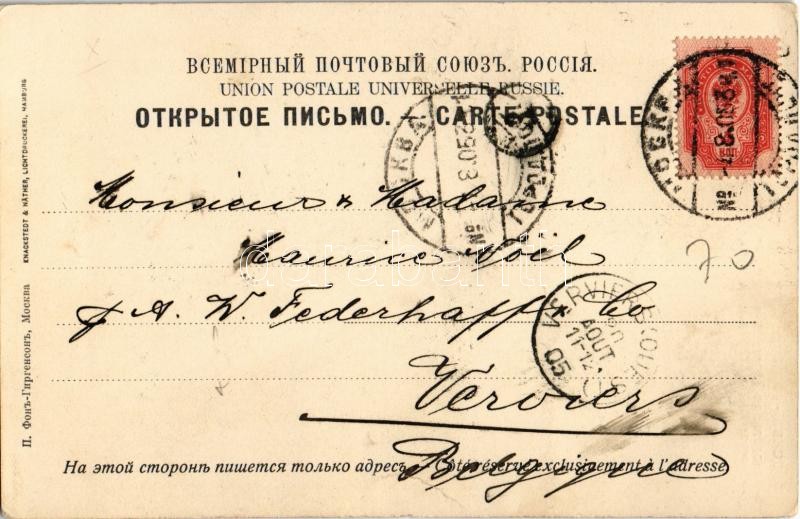 ВСЕМІРНЫЙ ПОЧТОВЫЙ СОЮЗЪ. РОССІЯ.
UNION POSTALE UNIVERSELLE. RUSSIE.
ОТКРЫТОЕ ПИСЬМО. — CARTE POSTALE
МОСКВА
Monsieur & Madame
Maurice Noël
A. W. Federhaff & Co
Verviers
Belgique
70
VERVIERS
AOUT
11-12
05
На этой сторонѣ пишется только адресъ. — Côté réservé exclusivement à l'adresse.
П. Фонъ-Гиргенсонъ, Москва
KNACKSTEDT & NÄTHER, LICHTDRUCKEREI, HAMBURG
darabanth